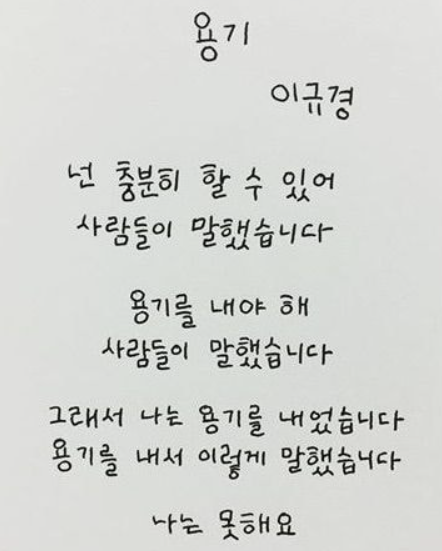 용기
이규경
넌 충분히 할 수 있어
사람들이 말했습니다
용기를 내야 해
사람들이 말했습니다
그래서 나는 용기를 내었습니다
용기를 내서 이렇게 말했습니다
나는 못해요